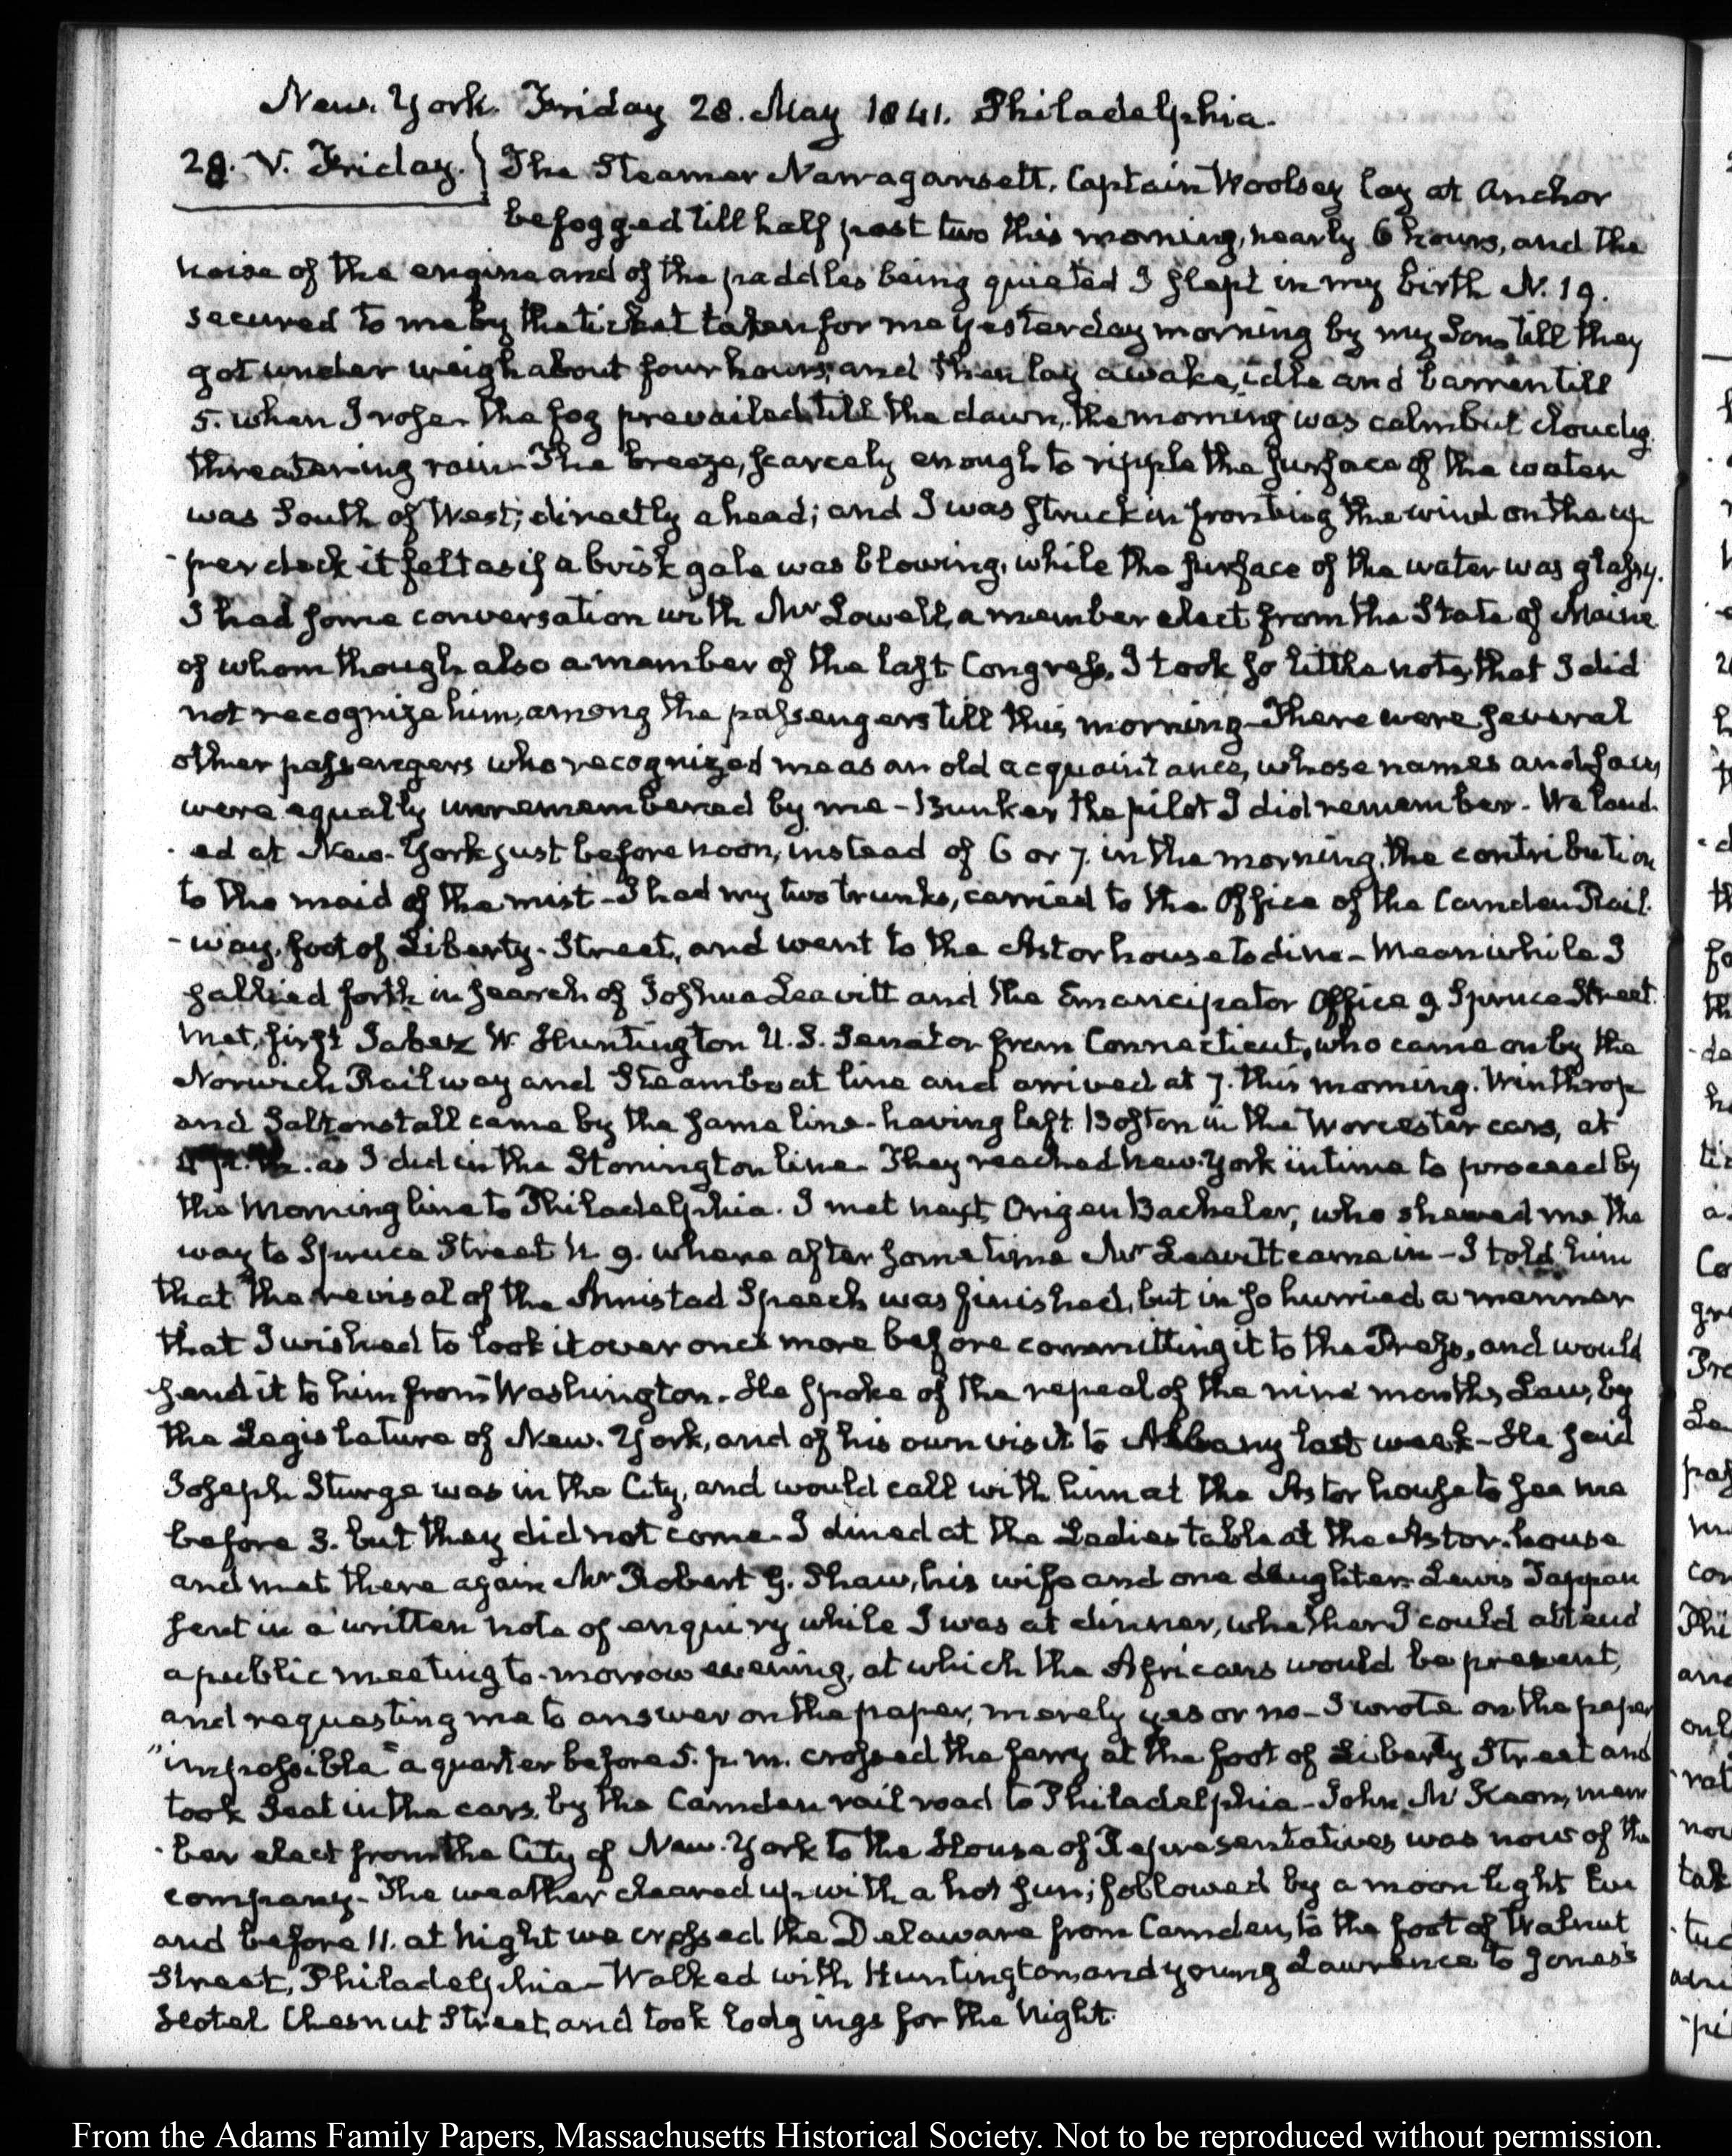 New-York. Friday 28. May 1841. Philadelphia.
28. V. Friday. } The Steamer Narragansett, Captain Woolsey lay at anchor
befogged till half past two this morning, nearly 6 hours, and the
noise of the engine and of the paddles being quieted I slept in my birth N. 19.
secured to me by the ticket taken for me yesterday morning by my Son, till they
got under weigh about four hours; and then lay awake, idle and barren till
5. when I rose. The fog prevailed till the dawn, the morning was calm but cloudy.
threatening rain. The breeze, scarcely enough to ripple the surface of the water
was South of West; directly ahead; and I was struck in fronting the wind on the up
-per deck it felt as if a brisk gale was blowing, while the surface of the water was glassy.
I had some conversation with Mr Lowell, a member elect from the State of Maine
of whom though also a member of the last Congress, I took so little note, that I did
not recognize him, among the passengers till this morning. There were several
other passengers who recognized me as an old acquaintance, whose names and faces
were equally unremembered by me - Bunker the pilot I did remember. We land
-ed at New-York just before noon, instead of 6 or 7. in the morning, the contribution
to the maid of the mist - I had my two trunks, carried to the Office of the Camden Rail
-way, foot of Liberty-Street, and went to the Astor house to dine - Meanwhile I
sallied forth in search of Joshua Leavitt and the Emancipator Office 9. Spruce Street
met, first Jabez W. Huntington U.S. Senator from Connecticut, who came on by the
Norwich Railway and Steamboat line and arrived at 7. this morning. Winthrop
and Saltonstall came by the same line - having left Boston in the Worcester cars, at
4 p.m. as I did in the Stonington line. They reached New-York in time to proceed by
the Morning line to Philadelphia. I met next, Origen Bacheler, who shewed me the
way to Spruce Street N. 9. where after some time Mr Leavitt came in - I told him
that the revisal of the Amistad Speech was finished, but in so hurried a manner
that I wished to look it over once more before committing it to the Press, and would
send it to him from Washington. He spoke of the repeal of the nine months Law, by
the Legislature of New-York, and of his own visit to Albany last week - He said
Joseph Sturge was in the City, and would call with him at the Astor house to see me
before 3. but they did not come. I dined at the Ladies table at the Astor-house
and met there again Mr Robert G. Shaw, his wife and one daughter. Lewis Tappan
sent in a written note of enquiry while I was at dinner, whether I could attend
a public meeting to-morrow evening, at which the Africans would be present,
and requesting me to answer on the paper, merely yes or no - I wrote on the paper
"impossible" a quarter before 5. p.m. crossed the ferry at the foot of Liberty Street and
took Seat in the cars, by the Camden rail road to Philadelphia - John McKeon, mem
-ber elect from the City of New-York to the House of Representatives was now of the
company - The weather cleared up with a hot sun; followed by a moon light Eve
and before 11. at Night we crossed the Delaware from Camden, to the foot of Walnut
Street, Philadelphia - Walked with Huntington and young Lawrence to Jones's
Hotel Chesnut Street, and took lodgings for the Night.
From the Adams Family Papers, Massachusetts Historical Society. Not to be reproduced without permission.